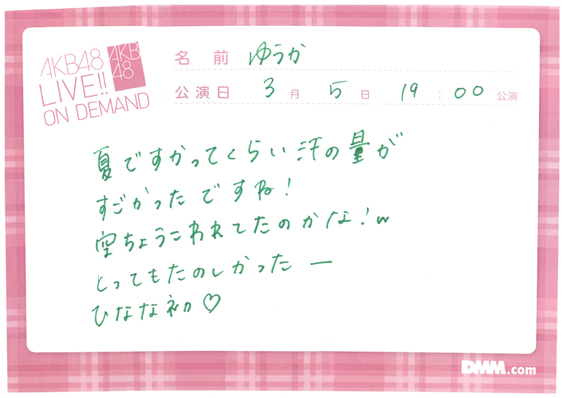 AKB48
LIVE!!
ON DEMAND
AKB
48
名前 ゆうか
公演日 3月 5日 19:00 公演
夏ですかってくらい汗の量が
すごかったですね!
空ちょうこわれてたのかな!w
とってもたのしかったー
ひなな初♡
DMM.com